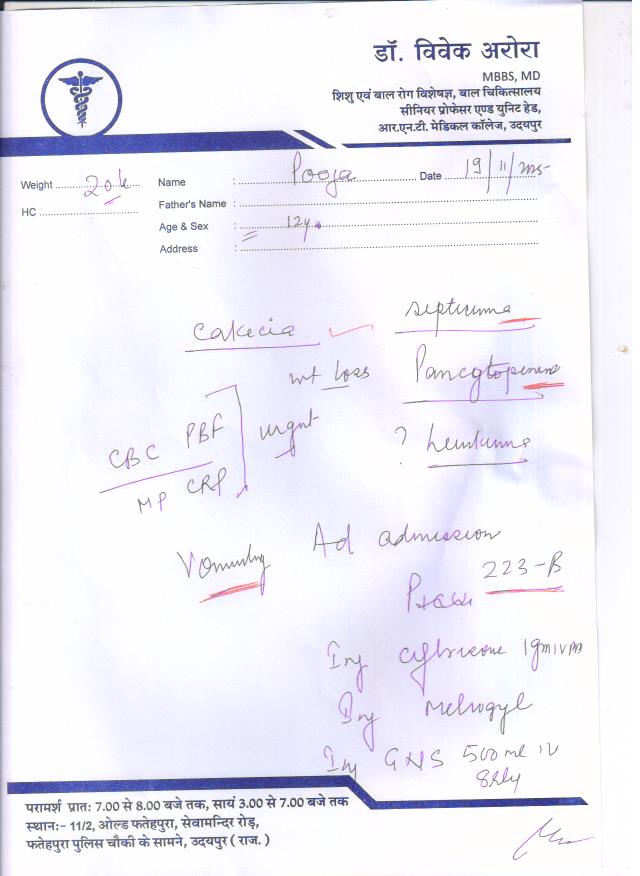 डॉ. विवेक अरोरा
MBBS, MD
शिशु एवं बाल रोग विशेषज्ञ, बाल चिकित्सालय
सीनियर प्रोफेसर एण्ड यूनिट हेड,
आर.एन.टी. मेडिकल कॉलेज, उदयपुर
Weight 20k Name : Pooja Date 19/11/2025
HC Father's Name :
Age & Sex : 12y
Address :
cakecia septicemia
wt loss Pancytopenia
CBC PBF urgent ?
MP CRP
Vomiting Ad admission
223-B
Inj 1gm IV
Inj Metrogyl
Inj GNS 500 ml IV
8hly
परामर्श प्रातः 7.00 से 8.00 बजे तक, सायं 3.00 से 7.00 बजे तक
स्थान:- 11/2, ओल्ड फतेहपुरा, सेवामन्दिर रोड़,
फतेहपुरा पुलिस चौकी के सामने, उदयपुर ( राज. )